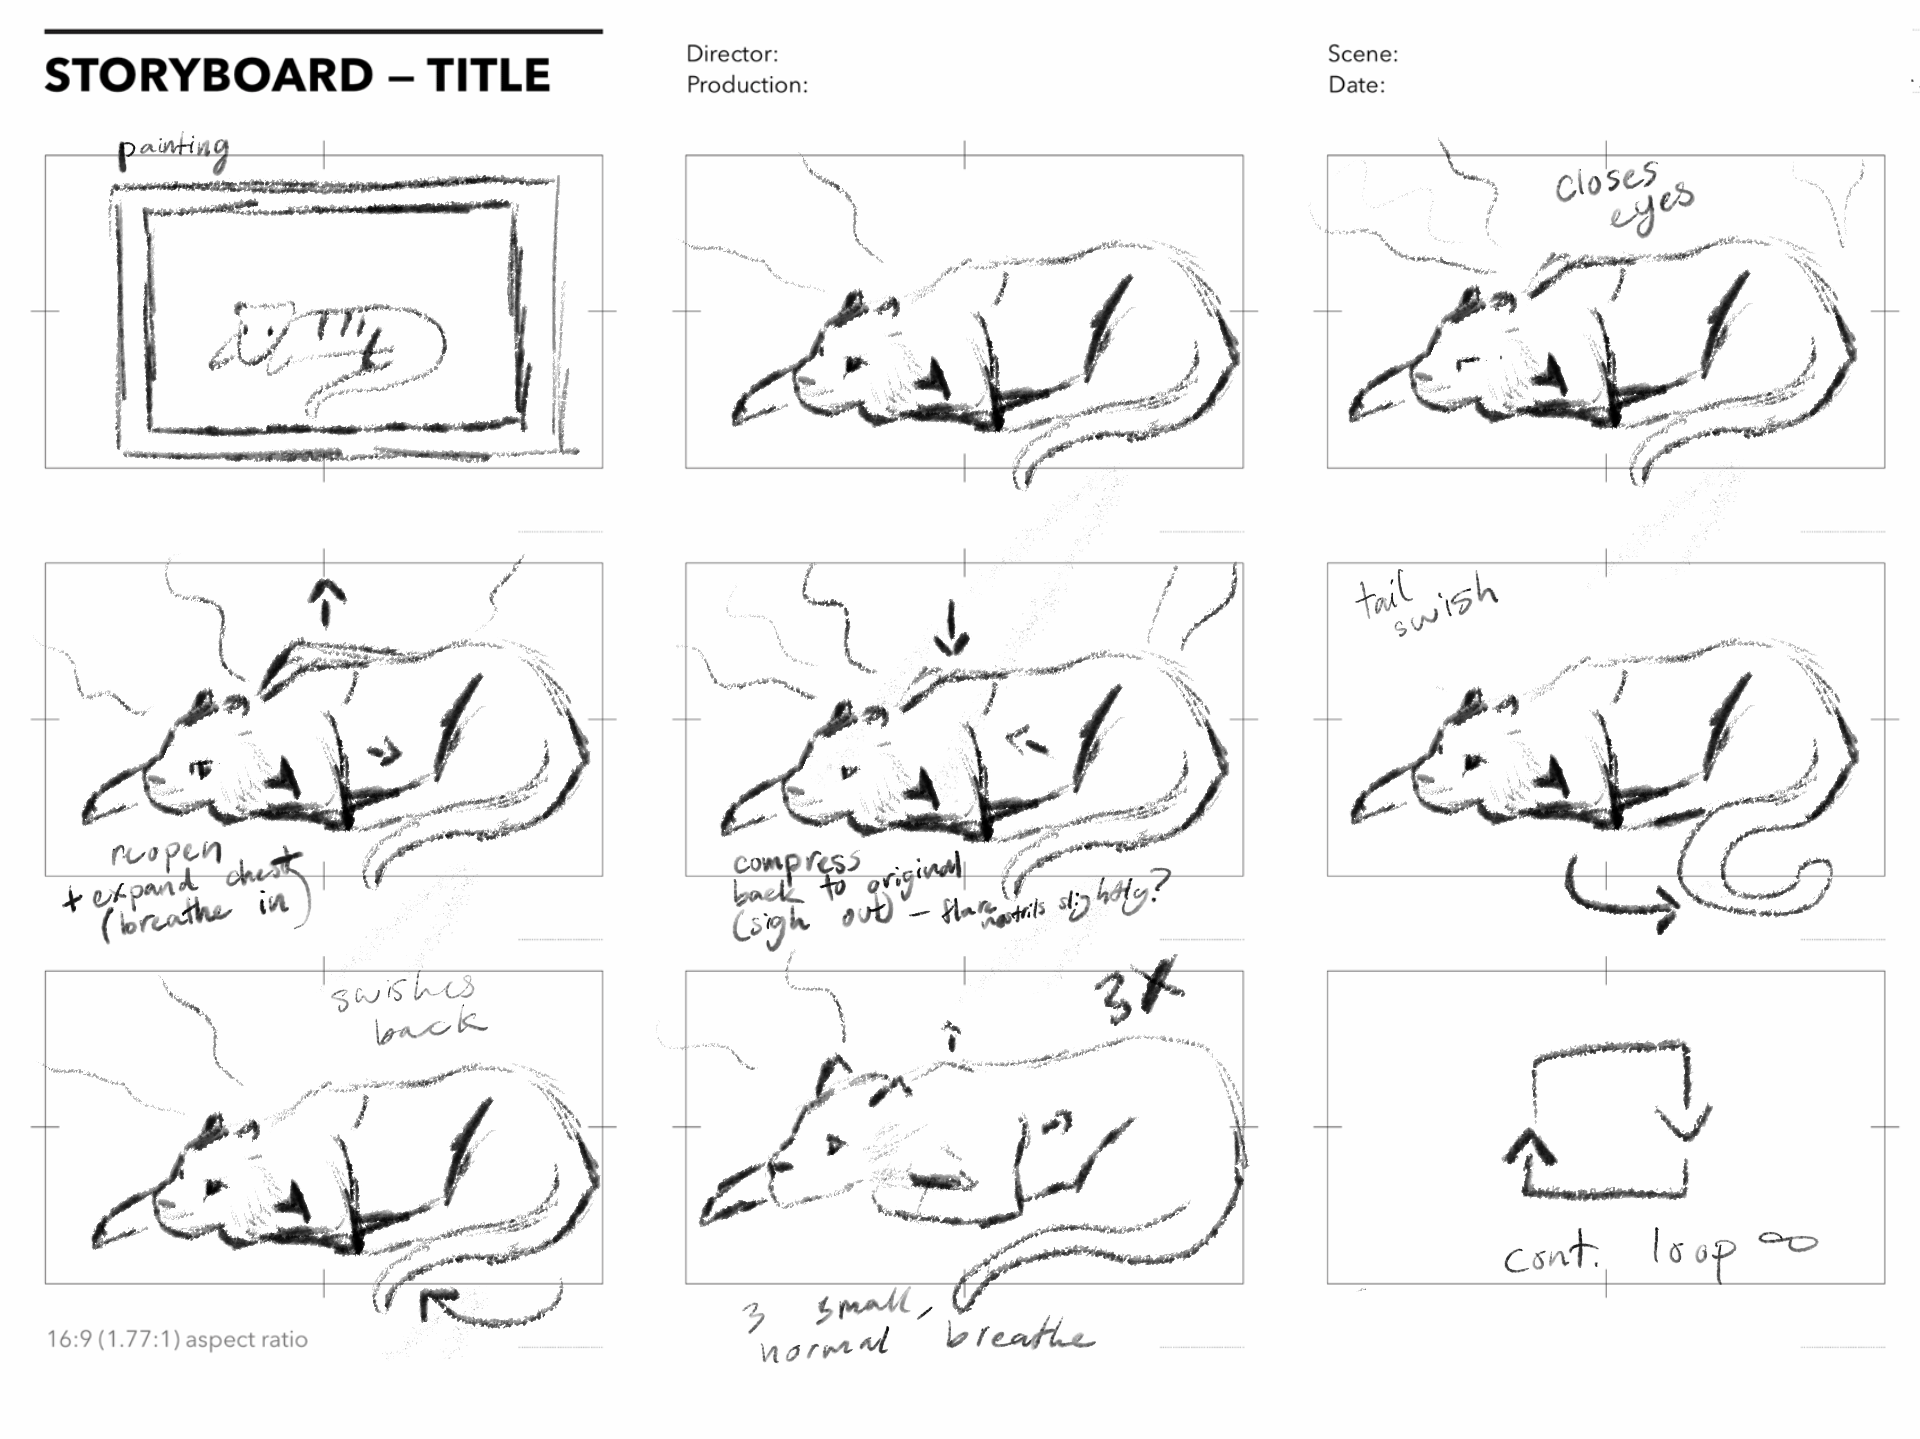 STORYBOARD – TITLE
Director:
Production:
Scene:
Date:
painting
closes
eyes
reopen
+ expand chest
(breathe in)
compress
back to original
(sigh out) – flare nostrils slightly?
tail
swish
swishes
back
3X
3 small,
normal breathe
cont. loop ∞
16:9 (1.77:1) aspect ratio